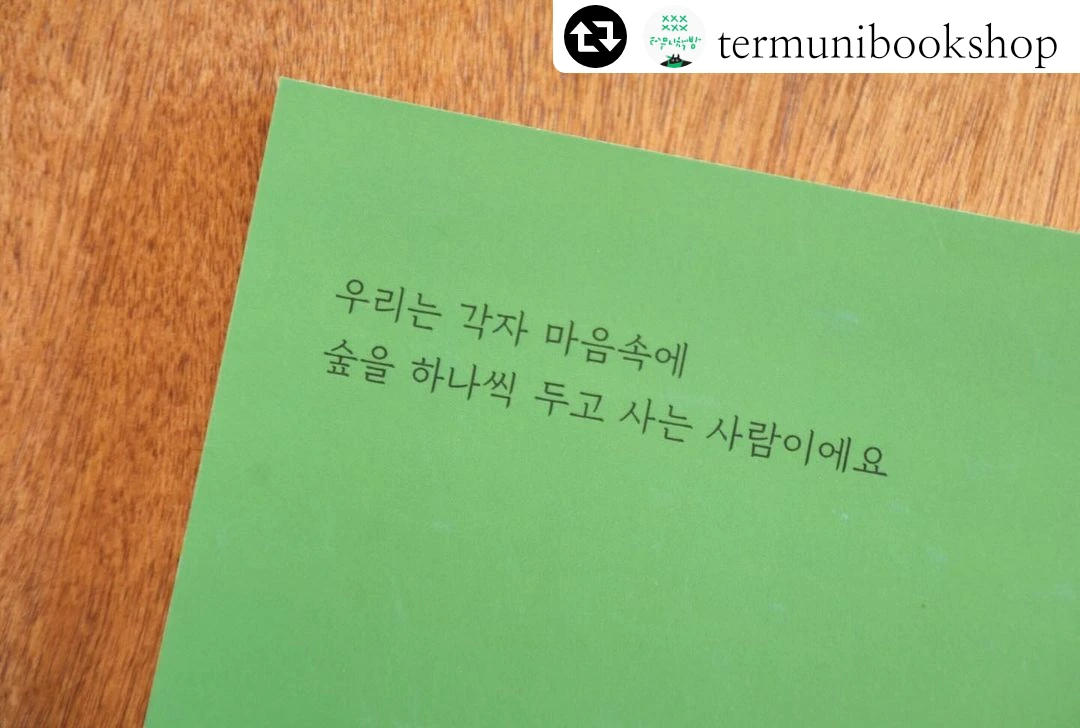 termunibookshop
터무니책방
우리는 각자 마음속에
숲을 하나씩 두고 사는 사람이에요